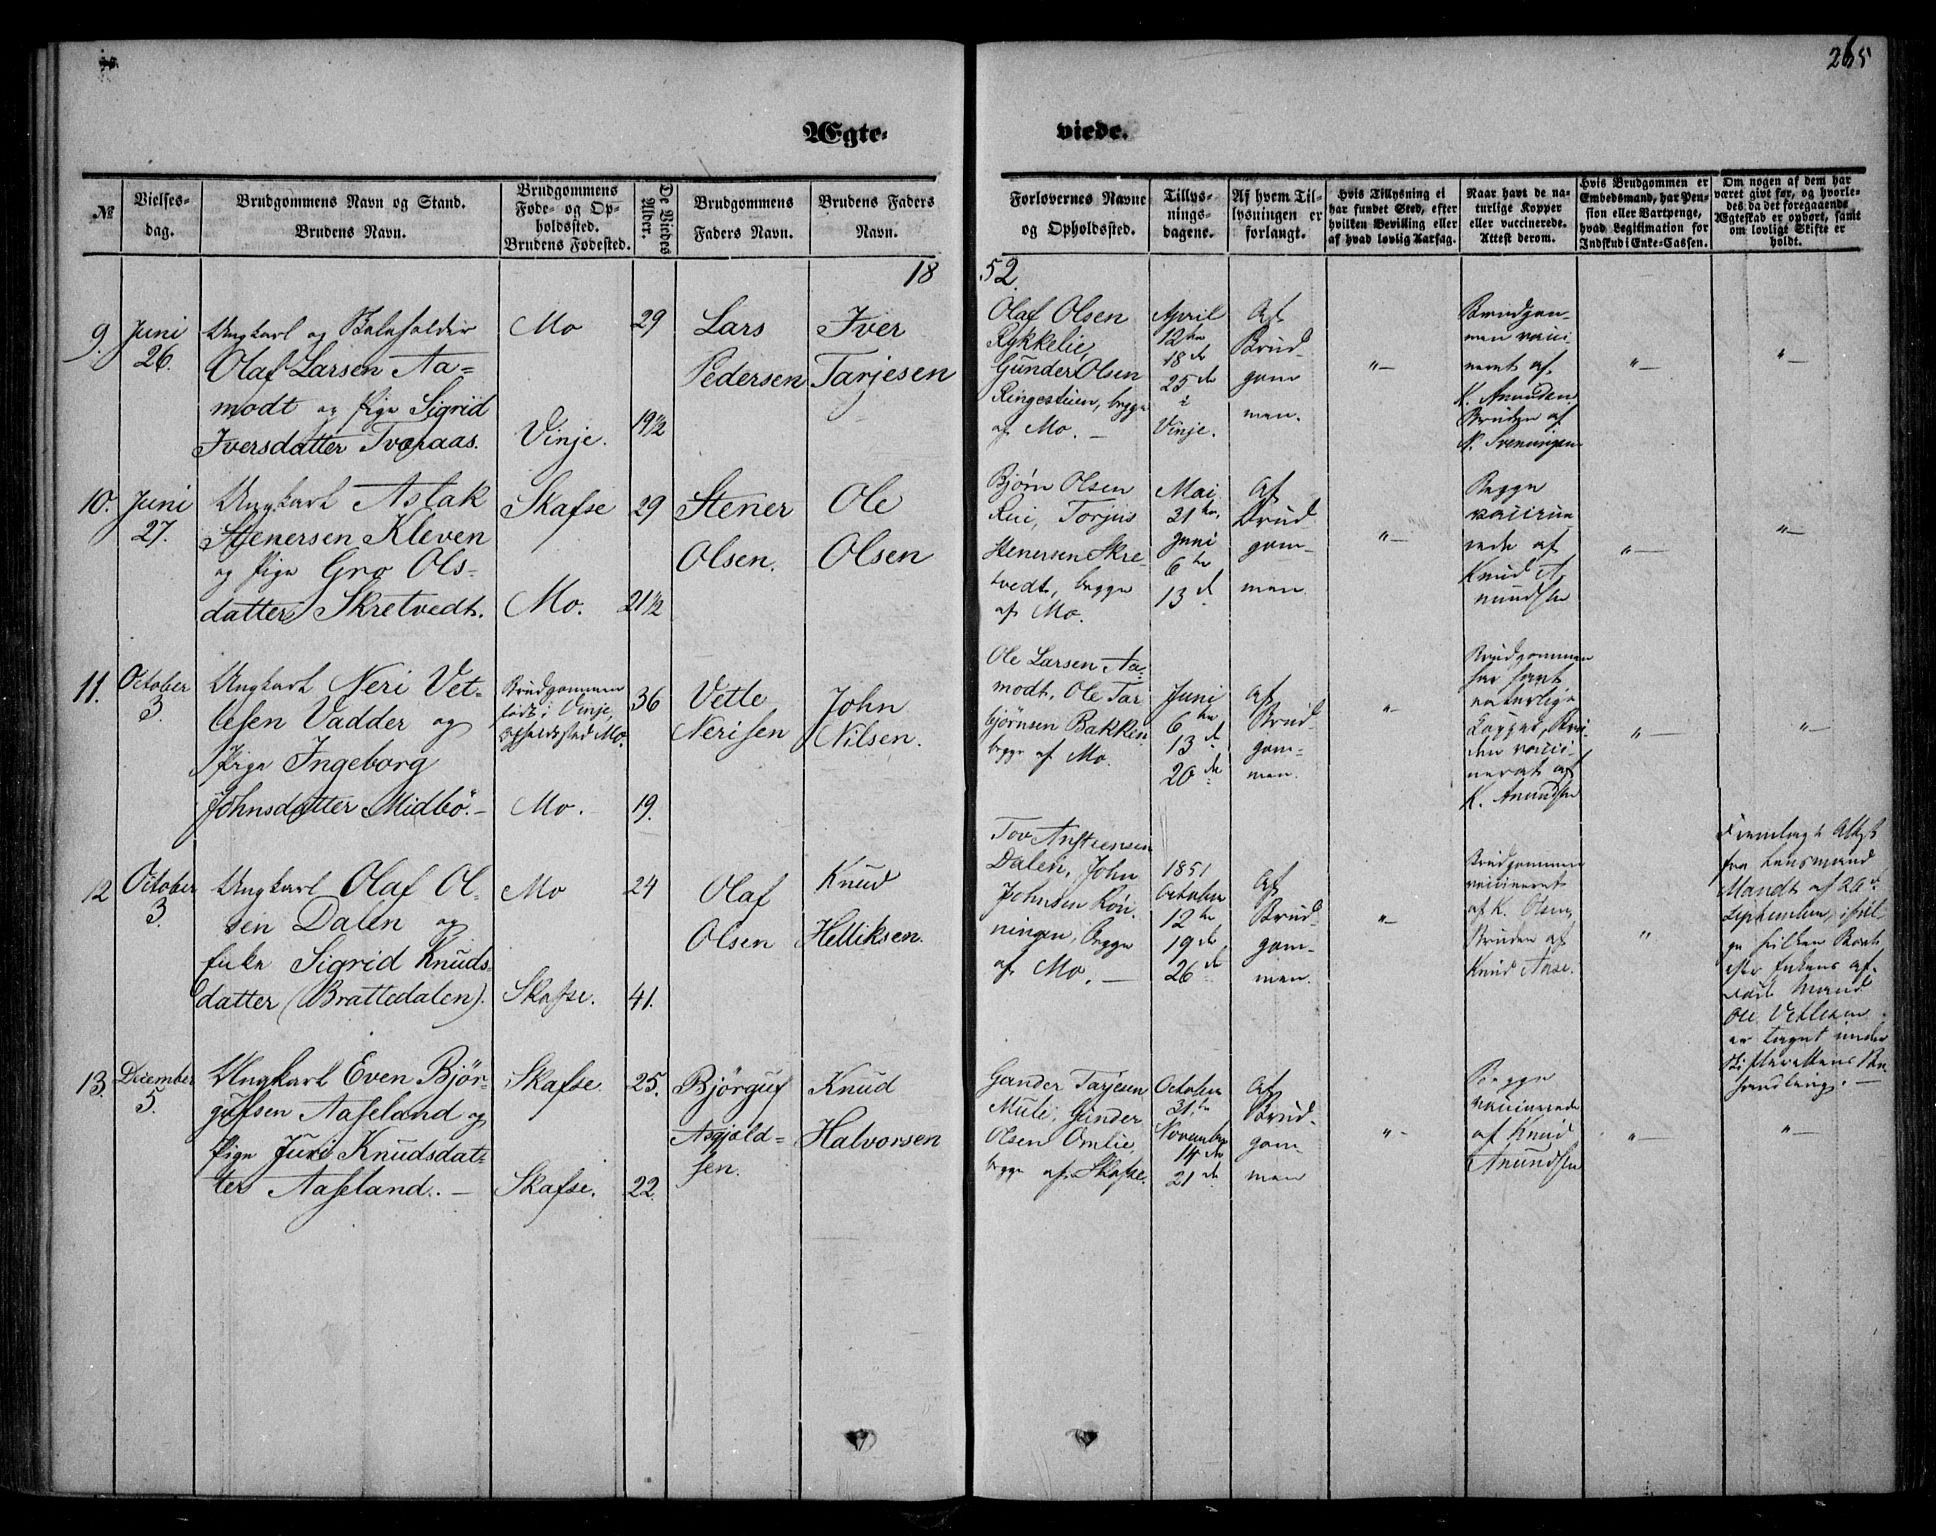 265
Ægte-
viede.
№
Vielses-
dag.
Brudgommens Navn og Stand.
Brudens Navn.
Brudgommens
Føde- og Op-
holdssted.
Brudens Fødested.
De Viedes
Alder.
Brudgommens
Faders Navn.
Brudens Faders
Navn.
Forlovernes Navne
og Opholdssted.
Tillys-
nings-
dagene.
Af hvem Til-
lysningen er
forlangt.
Hvis Tillysning ei
har fundet Sted, efter
hvilken Bevilling eller
af hvad lovlig Aarsag.
Naar havt de na-
turlige Kopper
eller vaccinerede.
Attest derom.
Hvis Brudgommen er
Embedsmand, har Pen-
sion eller Vartpenge,
hvad Legitimation for
Indskud i Enke-Cassen.
Om nogen af dem har
været gift før, og hvorle-
des da det foregaaende
Ægteskab er ophørt, samt
om lovligt Skifte er
holdt.
18
52.
9.
Juni
26.
Ungkarl og
Olaf Larsen Aa-
modt og Pige Sigrid
Iversdatter Tveraas.
Mo
Vinje.
29
19½
Lars
Pedersen
Iver
Tarjesen
Olaf Olsen
Rykkelie,
Gunder Olsen
Ringestuen, begge
af Mo. —
April
12te
18de
25de
i
Vinje.
Af
Brud-
gom-
men.
"—
Brudgom-
men vacci-
neret af
K. Anundsen
Bruden af
N. Sveningsen
"—
"—
10.
Juni
27.
Ungkarl Aslak
Stenersen Kleven
og Pige Gro Ols-
datter Skretvedt.
Skafse
Mo.
29
21½
Stener
Olsen.
Ole
Olsen
Bjørn Olsen
Rui, Torjus
Stenersen Skre-
tvedt, begge
af Mo.
Mai
31te
Juni
6te
13de
Af
Brud-
gom-
men
"—
Begge
vaccine-
rede af
Knud A-
nundsen
"—
"—
11.
October
3.
Ungkarl Neri Vet-
lesen Vadder og
Pige Ingeborg
Johnsdatter Midbö. —
Brudgommen
født i Vinje,
Opholdssted Mo.
Mo.
36
19.
Vetle
Nerisen
John
Nilsen.
Ole Larsen Aa-
modt, Ole Tar-
bjørnsen Bakken
begge af Mo.
Juni
6te
13de
20de
Af
Brud-
gom-
men.
"
Brudgommen
har havt
naturlige
Kopper, Bru-
den vacci-
neret af
K. Anundsen
"—
"—
12
October
3.
Ungkarl Olaf Ol-
sen Dalen og
Enke Sigrid Knuds-
datter (Brattedalen).
Mo
Skafse.
24
41.
Olaf
Olsen
Knud
Helliksen.
Tov Austensen
Dalen, John
Johnsen Röi-
ningen, begge
af Mo. —
1851
October
12te
19de
26de
Af
Brud-
gom-
men.
"—
Brudgommen
vaccineret
af K. Olsen,
Bruden af
Knud Aase.
"
Fremlagt Attest
fra Lensmand
Mandt af 20de
September, iføl-
ge hvilken Boet
efter Enkens af-
døde Mand
Ole Vetlesen
er taget under
Skifterettens Be-
handling. —
13.
December
5.
Ungkarl Even Björ-
gufsen Aaseland og
Pige Juri Knudsdat-
ter Aaseland. —
Skafse
Skafse.
25.
22.
Björguf
Asgjöld-
sen.
Knud
Halvorsen
Gunder Tarjesen
Mule, Gunder
Olsen Omlie,
begge af Skafse.
October
31te
November
14de
21de
Af
Brud-
gom-
men
"—
Begge
vaccinerede
af Knud
Anundsen
"—
"—